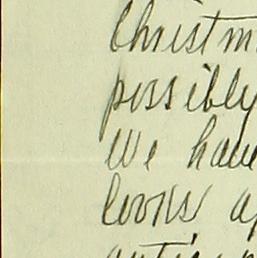 Christm
possibly
We have
looks a